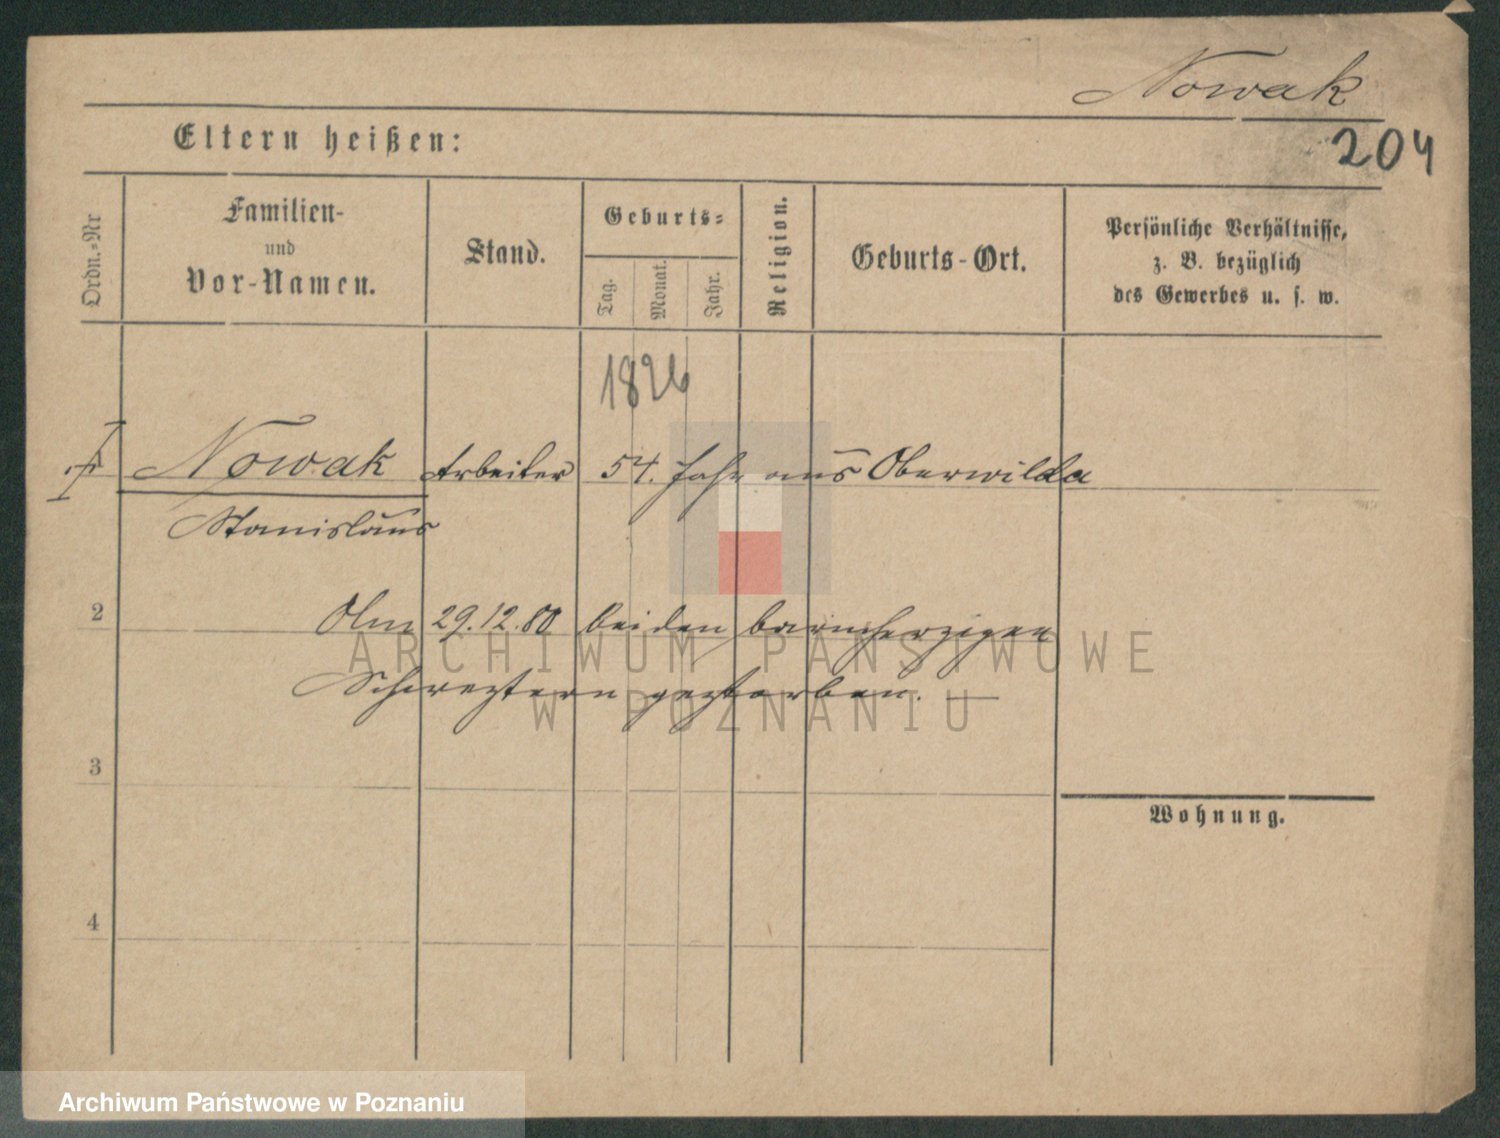 Nowak
204
Eltern heißen:
Ordn.-Nr
Familien-
und
Vor-Namen.
Stand.
Geburts=
Tag.
Monat.
Jahr.
Religion.
Geburts-Ort.
Persönliche Verhältnisse,
z. B. bezüglich
des Gewerbes u. s. w.
1826
Nowak Arbeiter 54. Jahr aus Oberwilda
Stanislaus
2
Am 29.12.80 bei den barmherzigen
Schwestern gestorben. —
3
Wohnung.
4
ARCHIWUM PAŃSTWOWE
W POZNANIU
Archiwum Państwowe w Poznaniu